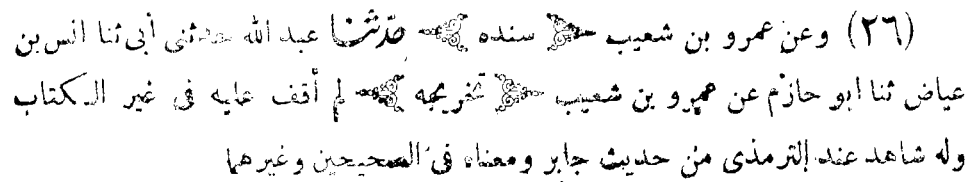 (٢٦) وعن عمرو بن شعيب ﴿ سنده ﴾ حدّثنا عبد الله حدثنى أبى ثنا انس بن
عياض ثنا ابو حازم عن عمرو بن شعيب ﴿ تخريجه ﴾ لم أقف عليه فى غير الكتاب
وله شاهد عند الترمذى من حديث جابر ومعناه فى الصحيحين وغيرهما